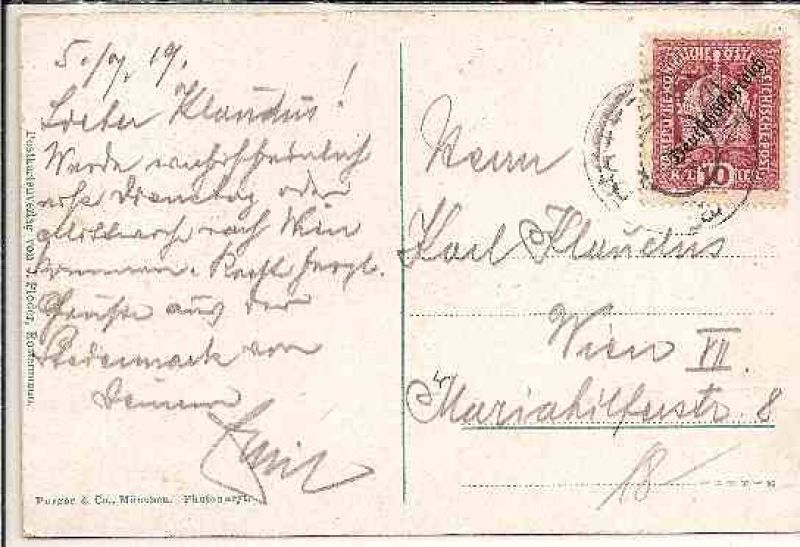 5./7. 19.
Lieber Klaudus!
Werde wahrscheinlich
erst Dienstag oder
Mittwoch nach Wien
kommen. Recht herzl.
Grüße aus der
Steiermark von
Deinem
Emil
Postkartenverlag von
Purger & Co., München. Photochromiekarte
Herrn
Karl Klaudus
Wien VII.
Mariahilferstr. 8
18
Deutschösterreich
10